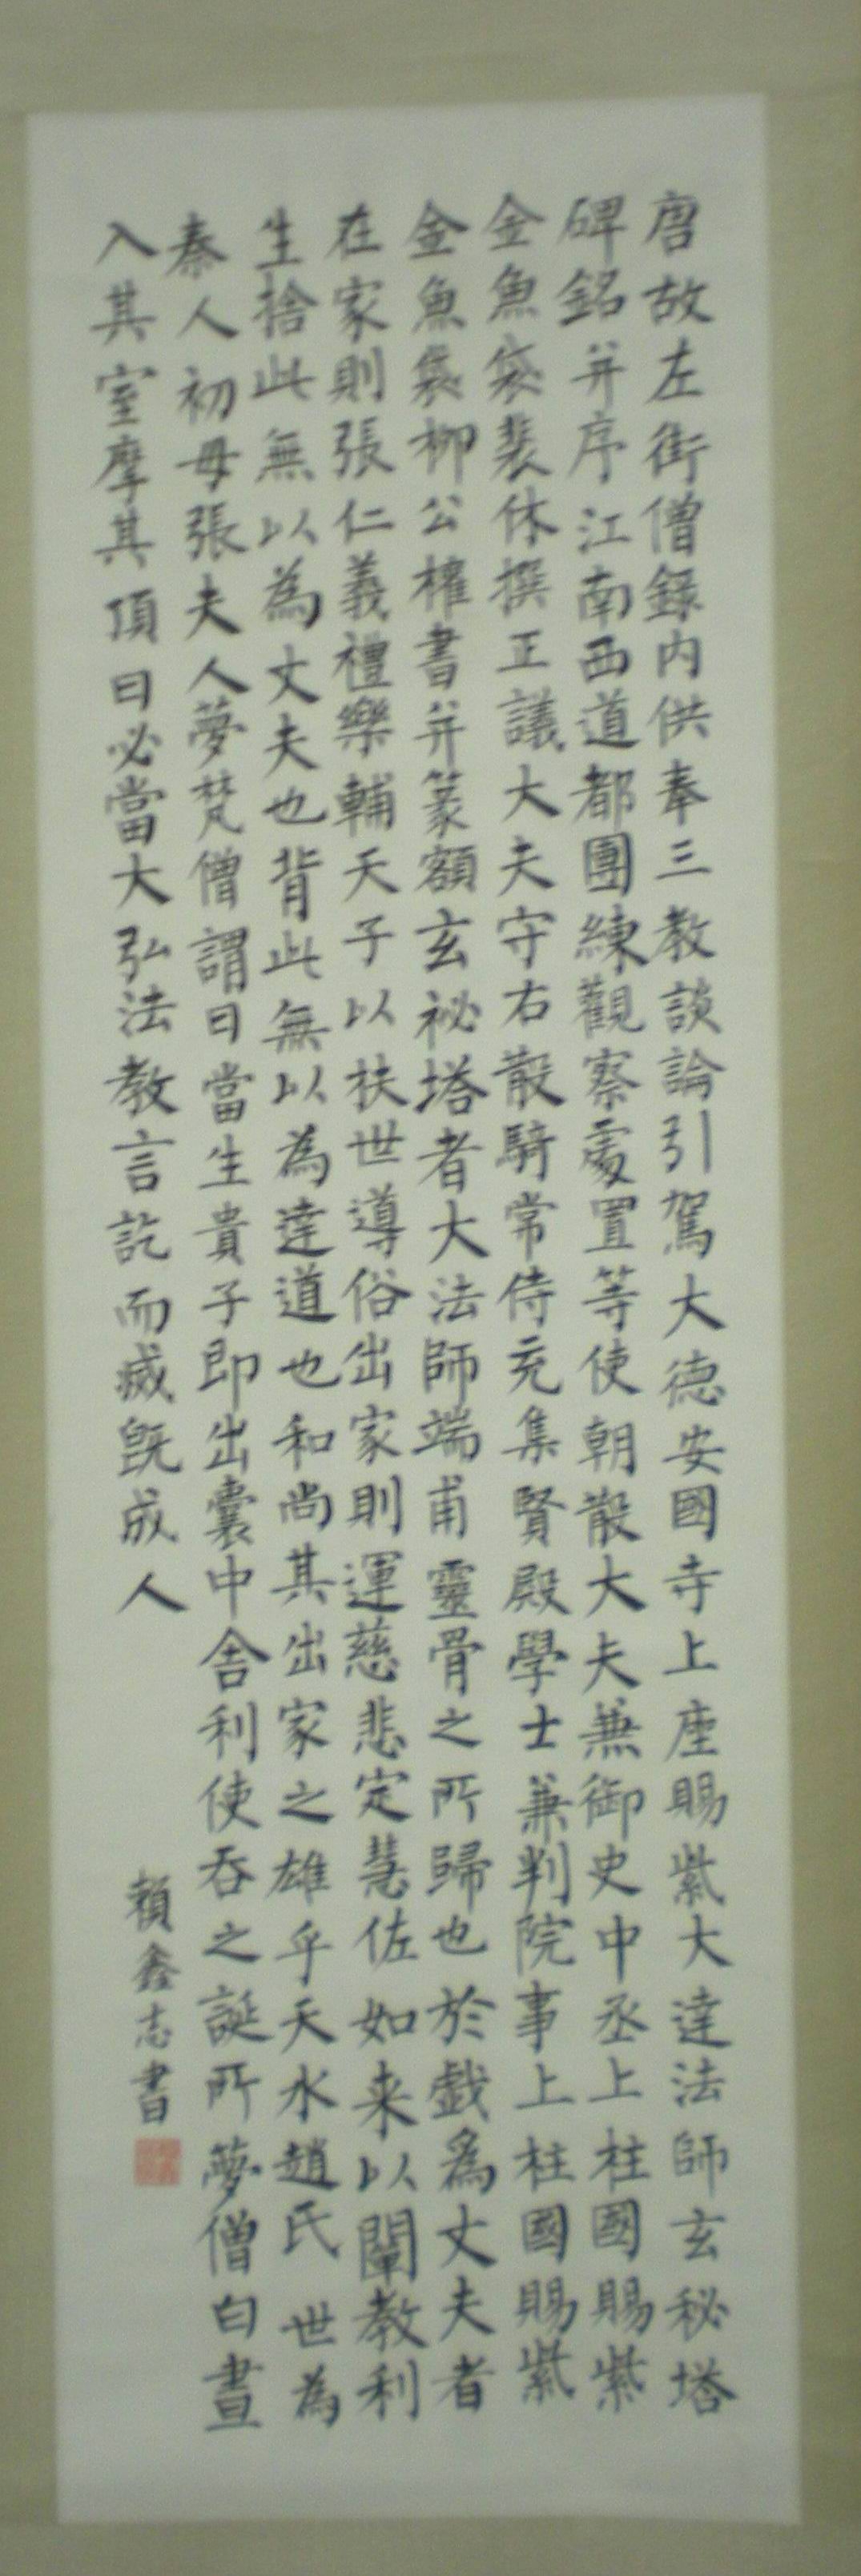 唐故左街僧錄內供奉三教談論引駕大德安國寺上座賜紫大達法師玄秘塔
碑銘并序江南西道都團練觀察處置等使朝散大夫兼御史中丞上柱國賜紫
金魚袋裴休撰正議大夫守右散騎常侍充集賢殿學士兼判院事上柱國賜紫
金魚袋柳公權書并篆額玄祕塔者大法師端甫靈骨之所歸也於戲為丈夫者
在家則張仁義禮樂輔天子以扶世導俗出家則運慈悲定慧佐如来以闡教利
生捨此無以為丈夫也背此無以為達道也和尚其出家之雄乎天水趙氏世為
秦人初母張夫人夢梵僧謂曰當生貴子即出囊中舍利使吞之誕所夢僧白晝
入其室摩其頂曰必當大弘法教言訖而滅既成人
賴鑫志書